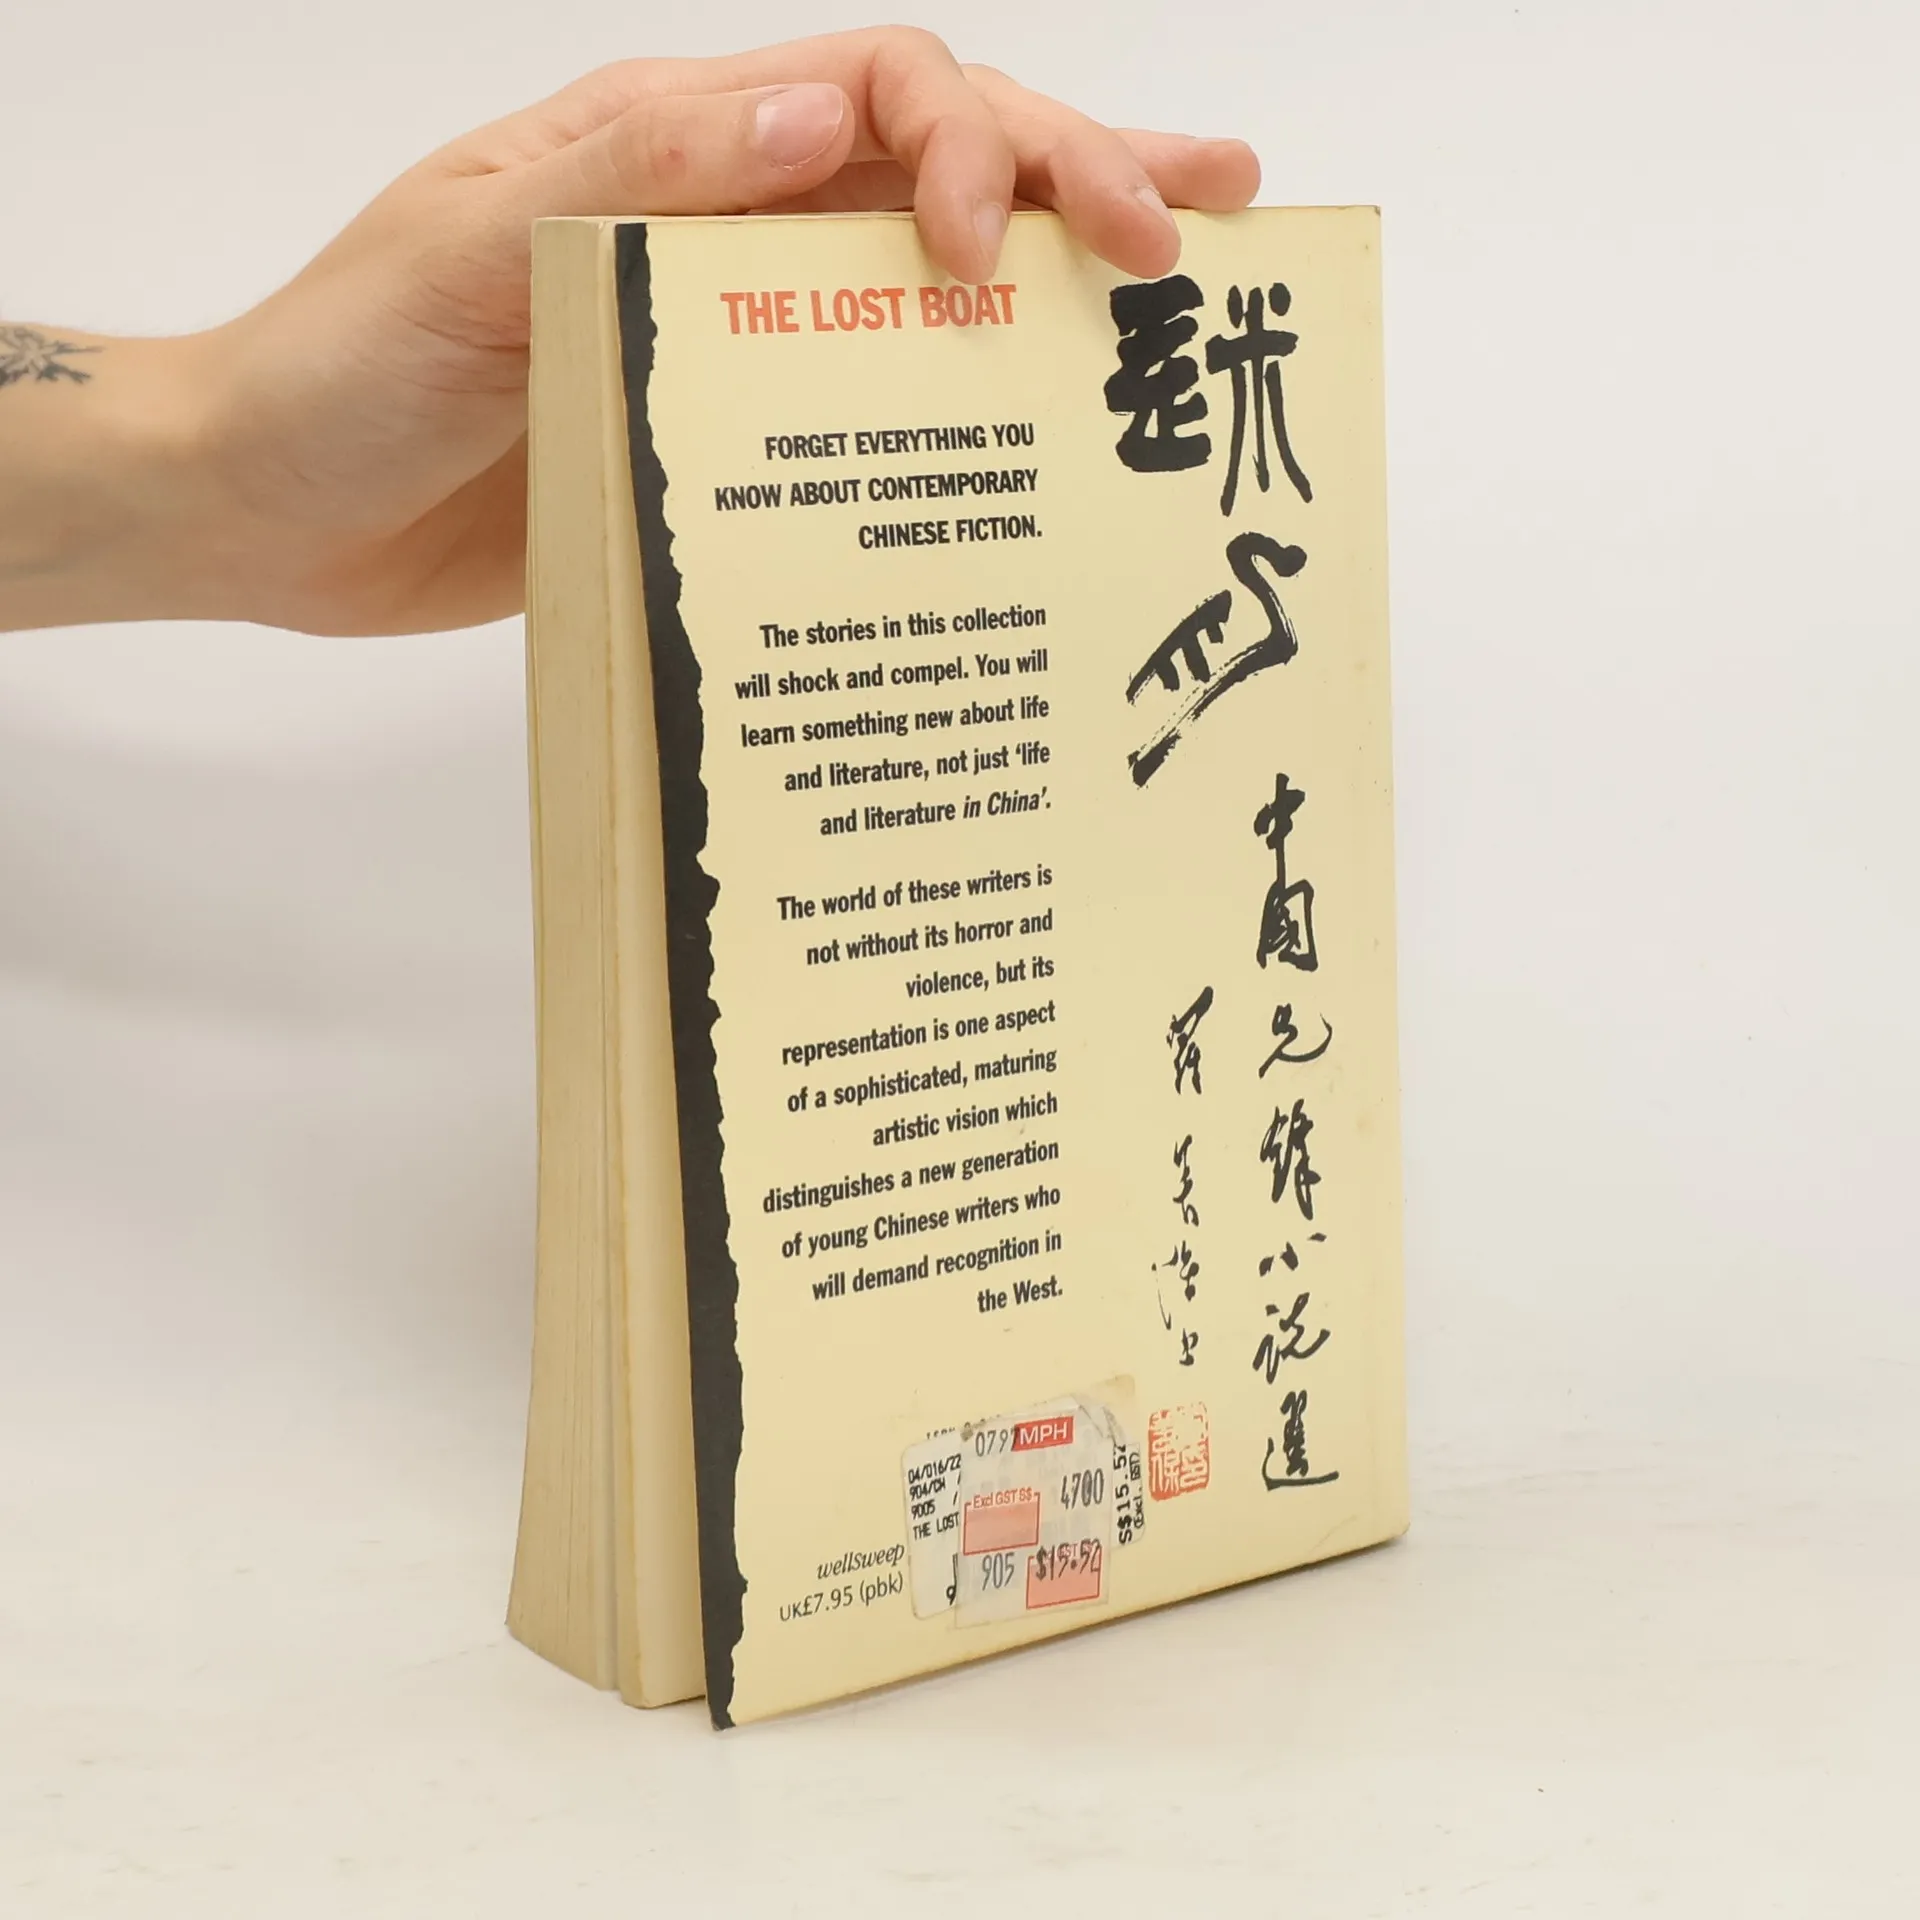 THE LOST BOAT
FORGET EVERYTHING YOU
KNOW ABOUT CONTEMPORARY
CHINESE FICTION.
The stories in this collection
will shock and compel. You will
learn something new about life
and literature, not just ‘life
and literature in China’.
The world of these writers is
not without its horror and
violence, but its
representation is one aspect
of a sophisticated, maturing
artistic vision which
distinguishes a new generation
of young Chinese writers who
will demand recognition in
the West.
wellSweep
UK£7.95 (pbk)
中國先鋒小說選
0797
MPH
4700
Excl GST S$
905
$15.52
04/016/22
904/CH
9005 /
THE LOST
S$15.52
(Excl. GST)